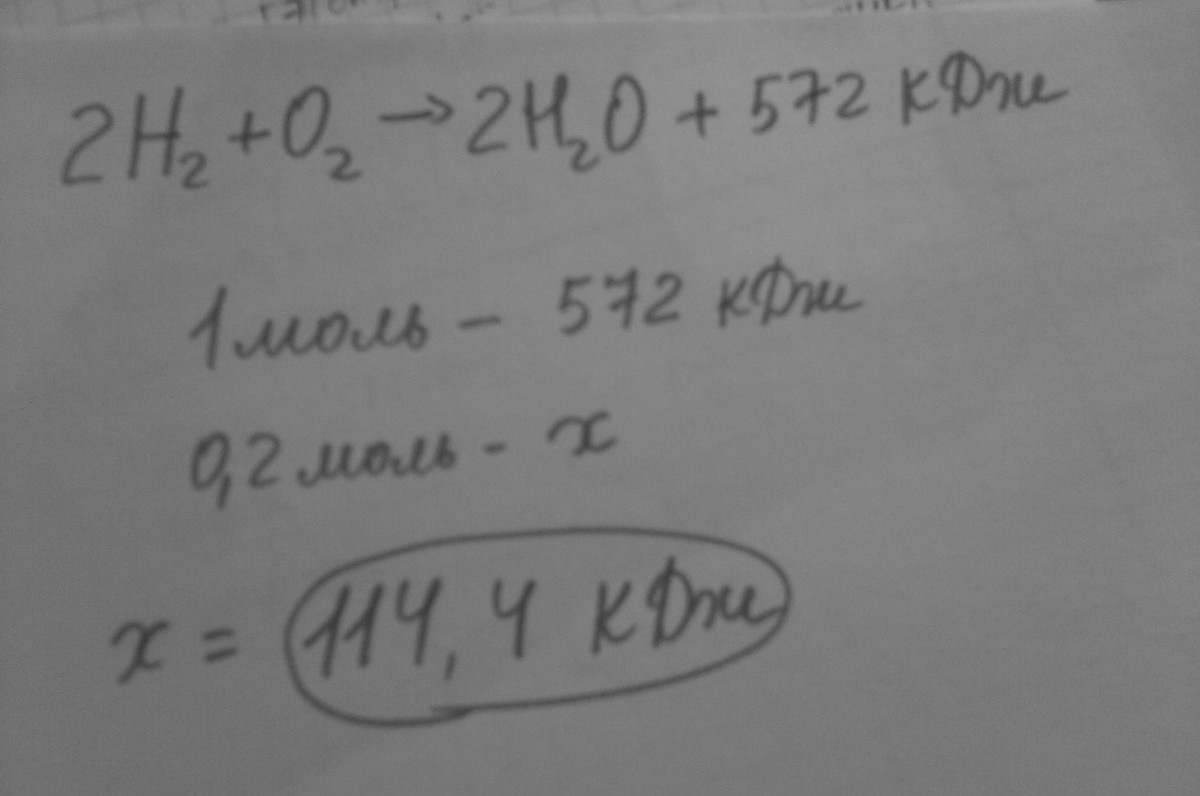 2H₂ + O₂ → 2H₂O + 572 кДж
1 моль – 572 кДж
0,2 моль - x
x = 114,4 кДж